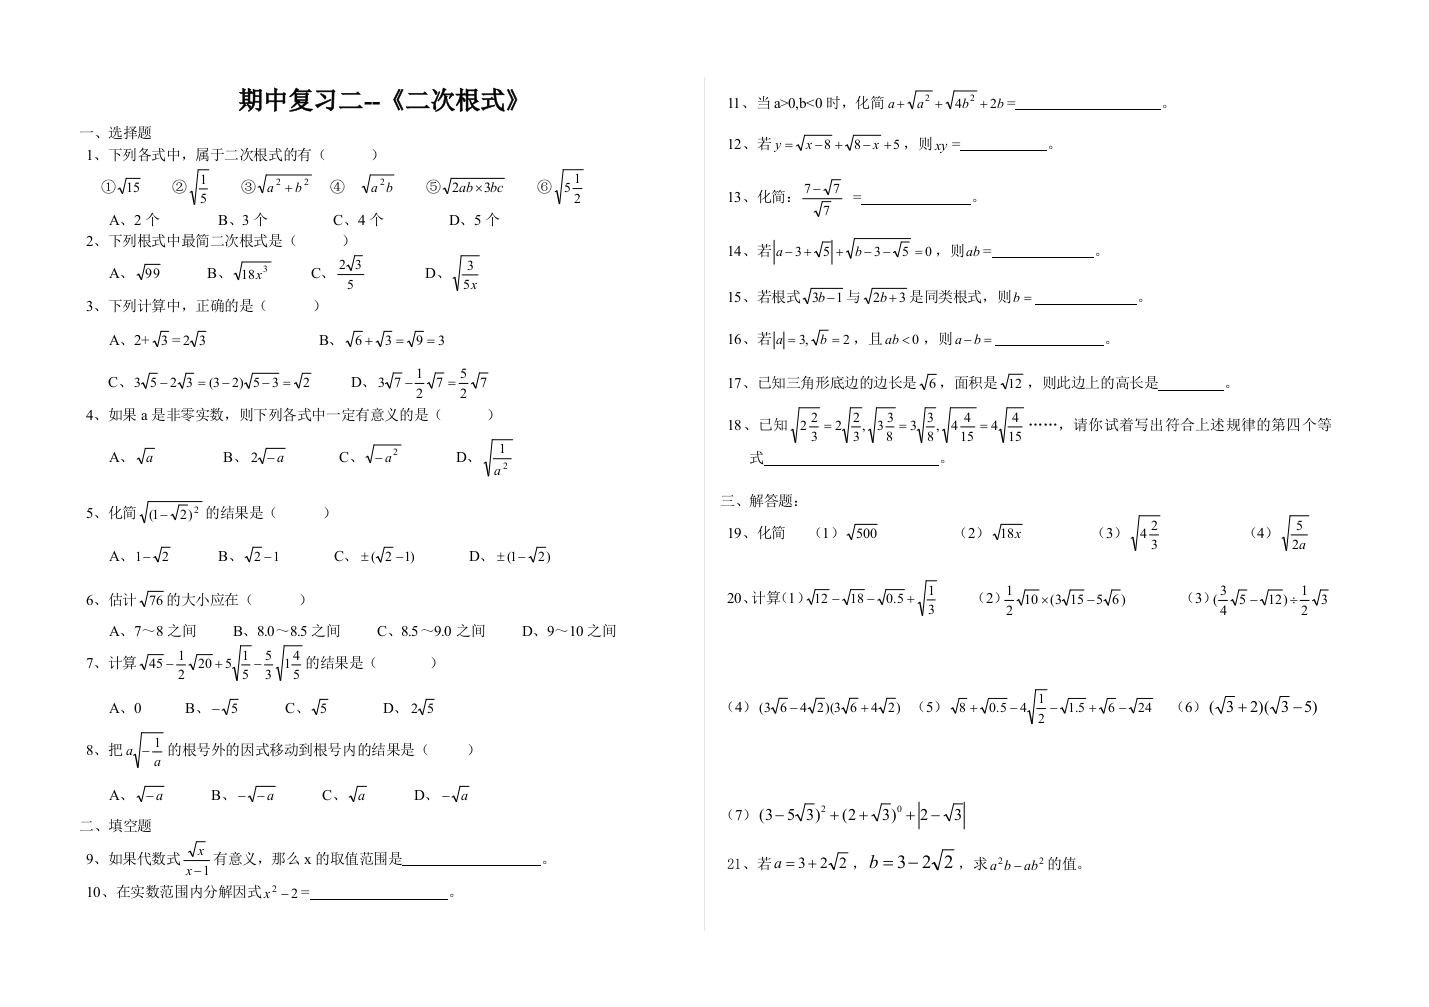 期中复习二--《二次根式》
一、选择题
1、下列各式中，属于二次根式的有（　　　）
①√15　②√(1/5)　③√(a²+b²)　④　√(a²b)　⑤√(2ab×3bc)　⑥√(5 1/2)
A、2 个　B、3 个　C、4 个　D、5 个
2、下列根式中最简二次根式是（　　　）
A、√99　B、√(18x³)　C、2√3/5　D、√(3/5x)
3、下列计算中，正确的是（　　　）
A、2+√3=2√3　B、√6+√3=√9=3
C、3√5−2√3=(3−2)√(5−3)=√2　D、3√7−1/2√7=5/2√7
4、如果 a 是非零实数，则下列各式中一定有意义的是（　　　）
A、√a　B、2√(−a)　C、√(−a²)　D、√(1/a²)
5、化简√((1−√2)²)的结果是（　　　）
A、1−√2　B、√2−1　C、±(√2−1)　D、±(1−√2)
6、估计√76的大小应在（　　　）
A、7～8 之间　B、8.0～8.5 之间　C、8.5～9.0 之间　D、9～10 之间
7、计算√45−1/2√20+5√(1/5)−5/3√(1 4/5)的结果是（　　　）
A、0　B、−√5　C、√5　D、2√5
8、把a√(−1/a)的根号外的因式移动到根号内的结果是（　　　）
A、√(−a)　B、−√(−a)　C、√a　D、−√a
二、填空题
9、如果代数式√x/(x−1)有意义，那么 x 的取值范围是＿＿＿＿＿＿。
10、在实数范围内分解因式x²−2=＿＿＿＿＿＿。
11、当 a>0,b<0 时，化简a+√(a²)+√(4b²)+2b=＿＿＿＿＿＿。
12、若y=√(x−8)+√(8−x)+5，则xy=＿＿＿＿＿＿。
13、化简：(7−√7)/√7 =＿＿＿＿＿＿。
14、若|a−3+√5|+√(b−3−√5)=0，则ab=＿＿＿＿＿＿。
15、若根式√(3b−1)与√(2b+3)是同类根式，则b=＿＿＿＿＿＿。
16、若|a|=3,√b=2，且ab<0，则a−b=＿＿＿＿＿＿。
17、已知三角形底边的边长是√6，面积是√12，则此边上的高长是＿＿＿＿。
18、已知√(2 2/3)=2√(2/3),√(3 3/8)=3√(3/8),√(4 4/15)=4√(4/15)……，请你试着写出符合上述规律的第四个等
式＿＿＿＿＿＿。
三、解答题：
19、化简　（1）√500　（2）√(18x)　（3）√(4 2/3)　（4）√(5/2a)
20、计算（1）√12−√18−√0.5+√(1/3)　（2）1/2√10×(3√15−5√6)　（3）(3/4√5−√12)÷1/2√3
（4）(3√6−4√2)(3√6+4√2)　（5）√8+√0.5−4√(1/2)−√1.5+√6−√24　（6）(√3+2)(√3−5)
（7）(3−5√3)²+(2+√3)⁰+|2−√3|
21、若a=3+2√2，b=3−2√2，求a²b−ab²的值。